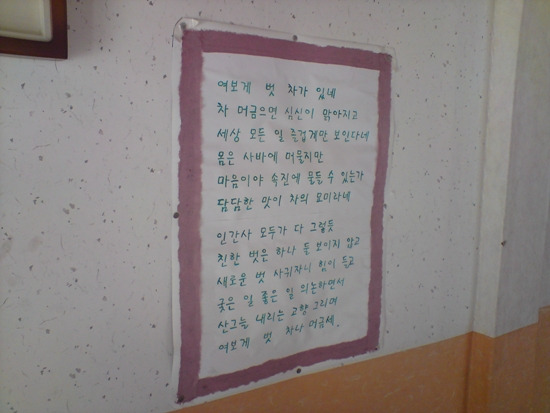 여보게 벗 차가 있네
차 머금으면 심신이 맑아지고
세상 모든 일 즐겁게만 보인다네
몸은 사바에 머물지만
마음이야 속진에 물들 수 있는가
담담한 맛이 차의 묘미라네
인간사 모두가 다 그렇듯
친한 벗은 하나 둘 보이지 않고
새로운 벗 사귀자니 힘이 들고
궂은 일 좋은 일 의논하면서
산그늘 내리는 고향 그리며
여보게 벗 차나 머금세.